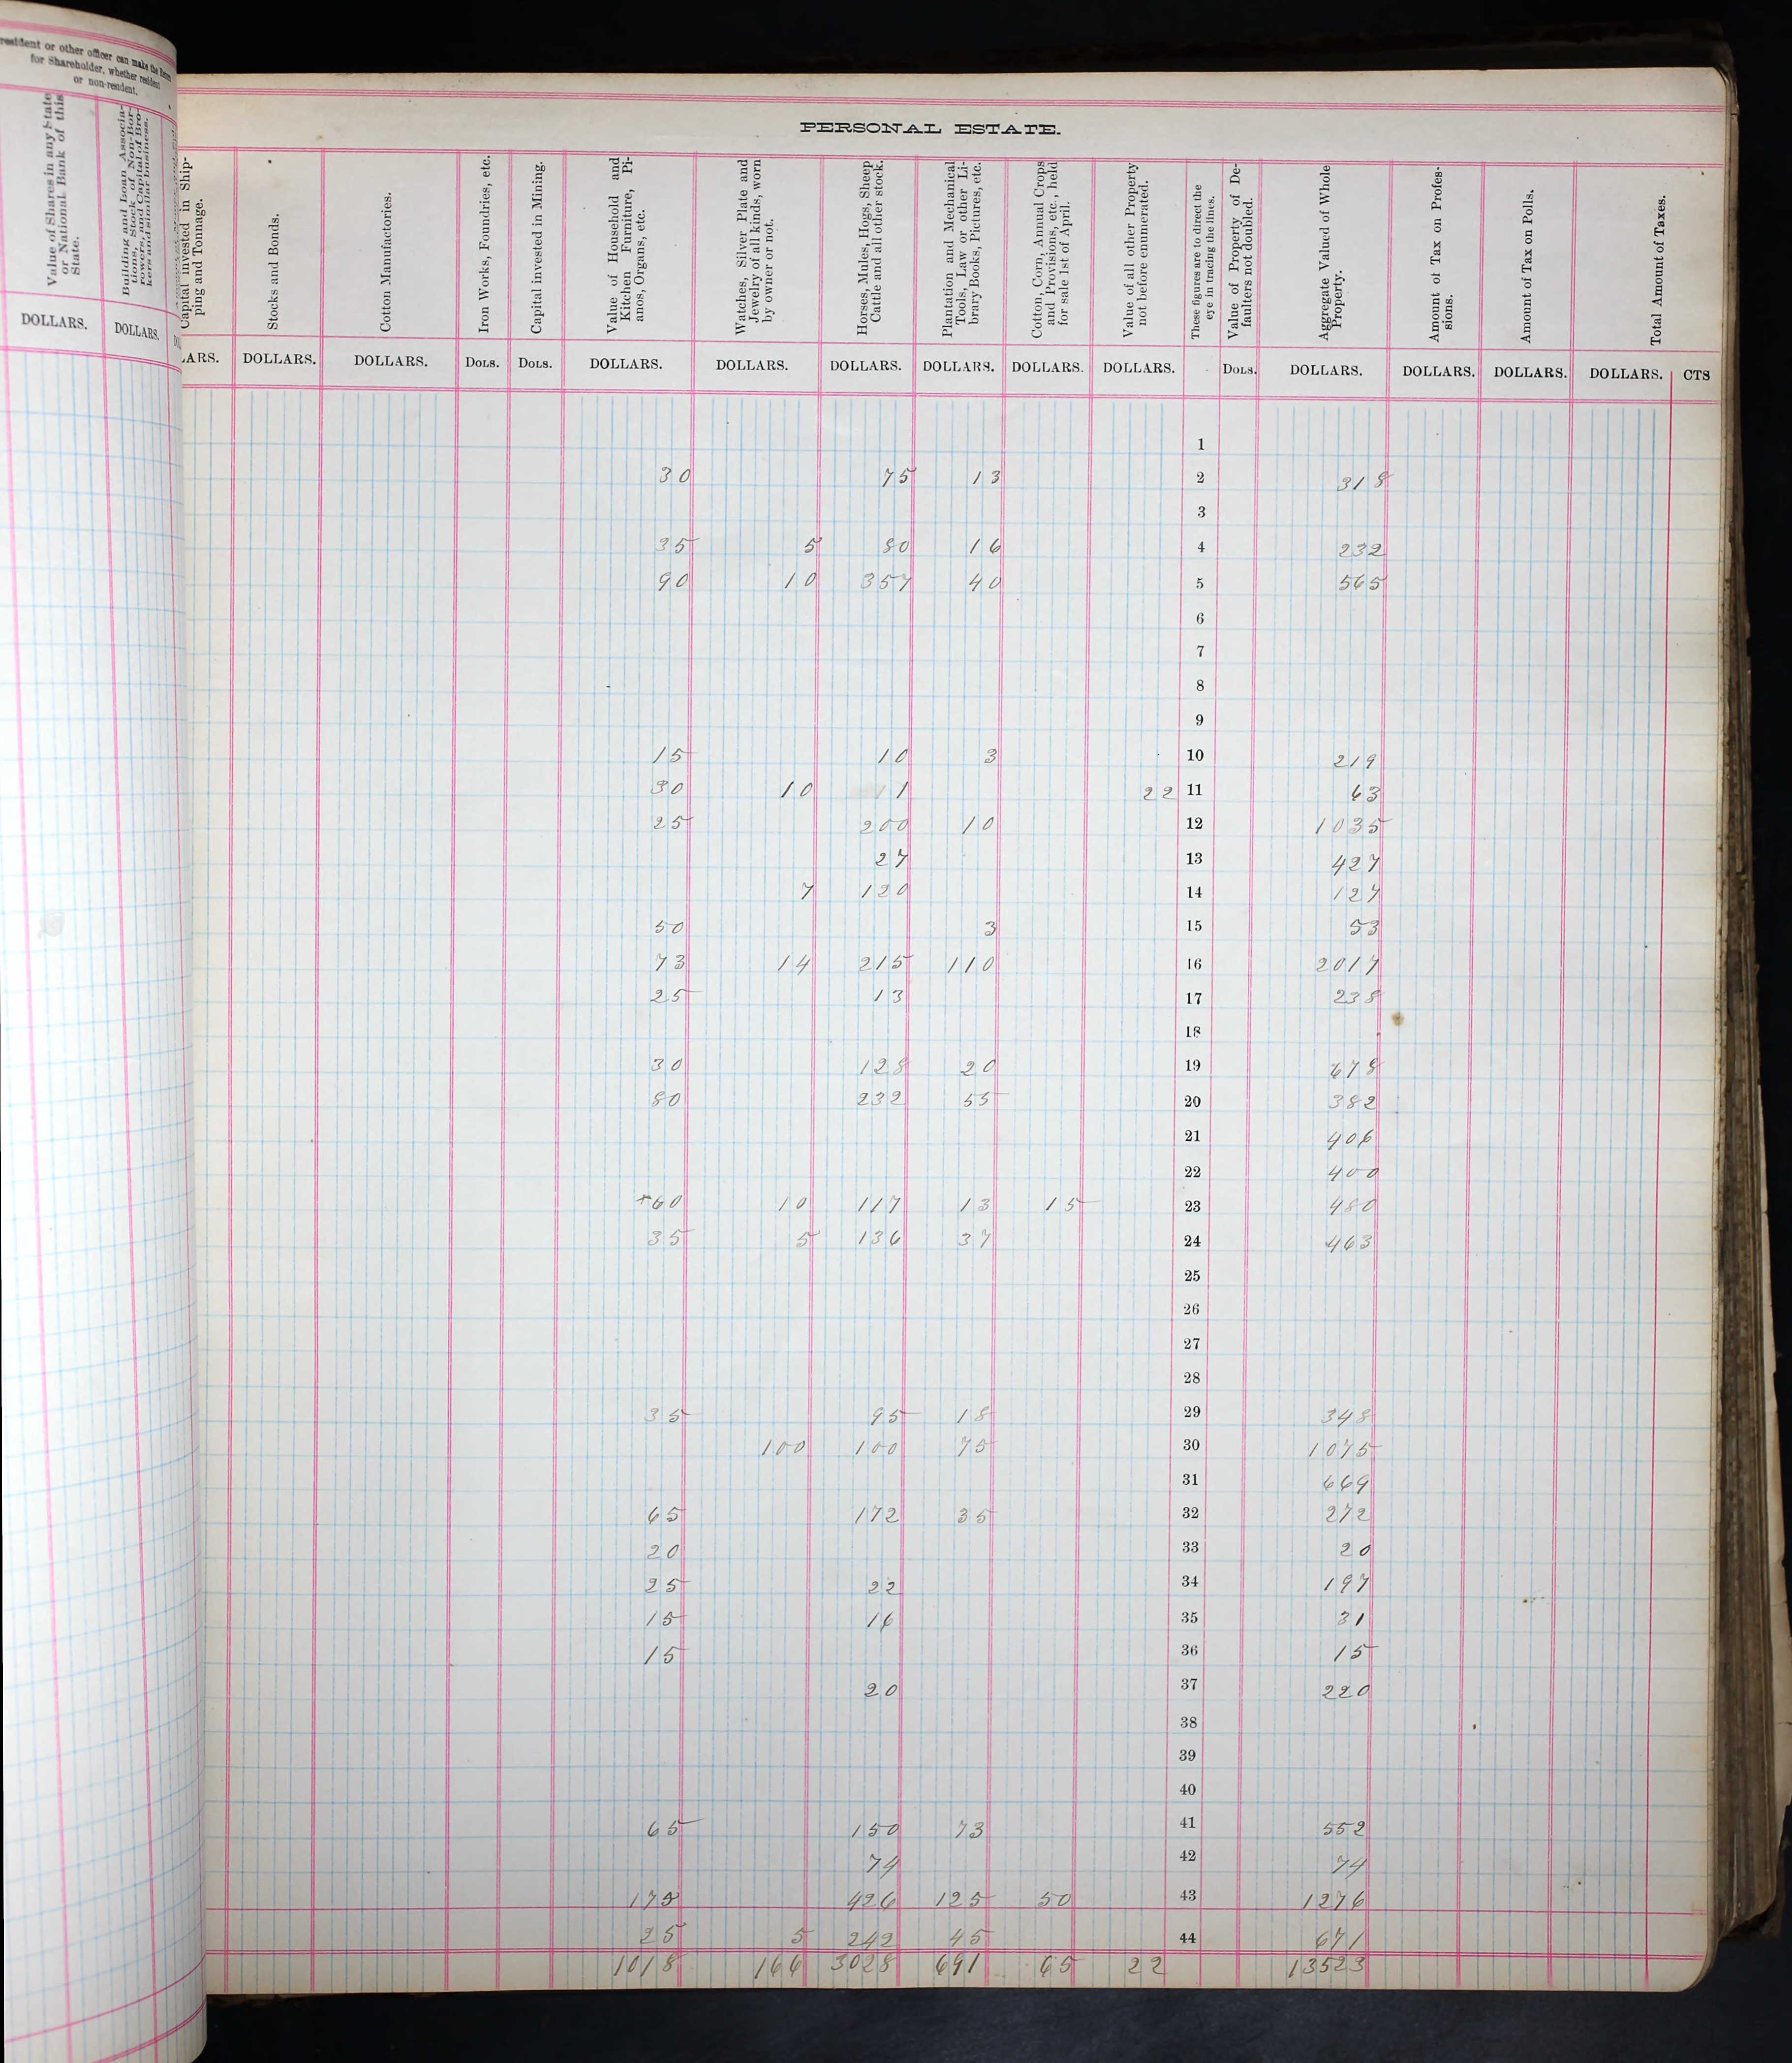 resident or other officer can make the Return
for Shareholder, whether resident
or non-resident.
Value of Shares in any State
or National Bank of this
State.
Building and Loan Associa-
tions, Stock of Non-Bor-
rowers, and Capital of Bro-
kers and similar business.
DOLLARS. DOLLARS.
PERSONAL ESTATE.
Capital invested in Ship-
ping and Tonnage.
Stocks and Bonds.
Cotton Manufactories.
Iron Works, Foundries, etc.
Capital invested in Mining.
Value of Household and
Kitchen Furniture, Pi-
anos, Organs, etc.
Watches, Silver Plate and
Jewelry of all kinds, worn
by owner or not.
Horses, Mules, Hogs, Sheep
Cattle and all other stock.
Plantation and Mechanical
Tools, Law or other Li-
brary Books, Pictures, etc.
Cotton, Corn, Annual Crops
and Provisions, etc., held
for sale 1st of April.
Value of all other Property
not before enumerated.
These figures are to direct the
eye in tracing the lines.
Value of Property of De-
faulters not doubled.
Aggregate Valued of Whole
Property.
Amount of Tax on Profes-
sions.
Amount of Tax on Polls.
Total Amount of Taxes.
LARS. DOLLARS. DOLLARS. DOLS. DOLS. DOLLARS. DOLLARS. DOLLARS. DOLLARS. DOLLARS. DOLLARS. DOLS. DOLLARS. DOLLARS. DOLLARS. DOLLARS. CTS
1
30 75 13 2 318
3
35 5 80 16 4 232
90 10 357 40 5 565
6
7
8
9
15 10 3 10 219
30 10 11 22 11 63
25 200 10 12 1035
27 13 427
7 120 14 127
50 3 15 53
73 14 215 110 16 2017
25 13 17 238
18
30 128 20 19 678
80 232 55 20 382
21 406
22 400
+60 10 117 13 15 23 480
35 5 136 37 24 463
25
26
27
28
35 95 18 29 348
100 100 75 30 1075
31 669
65 172 35 32 272
20 33 20
25 22 34 197
15 16 35 31
15 36 15
20 37 220
38
39
40
65 150 73 41 552
74 42 74
175 426 125 50 43 1276
25 5 242 45 44 671
1018 166 3028 691 65 22 13523